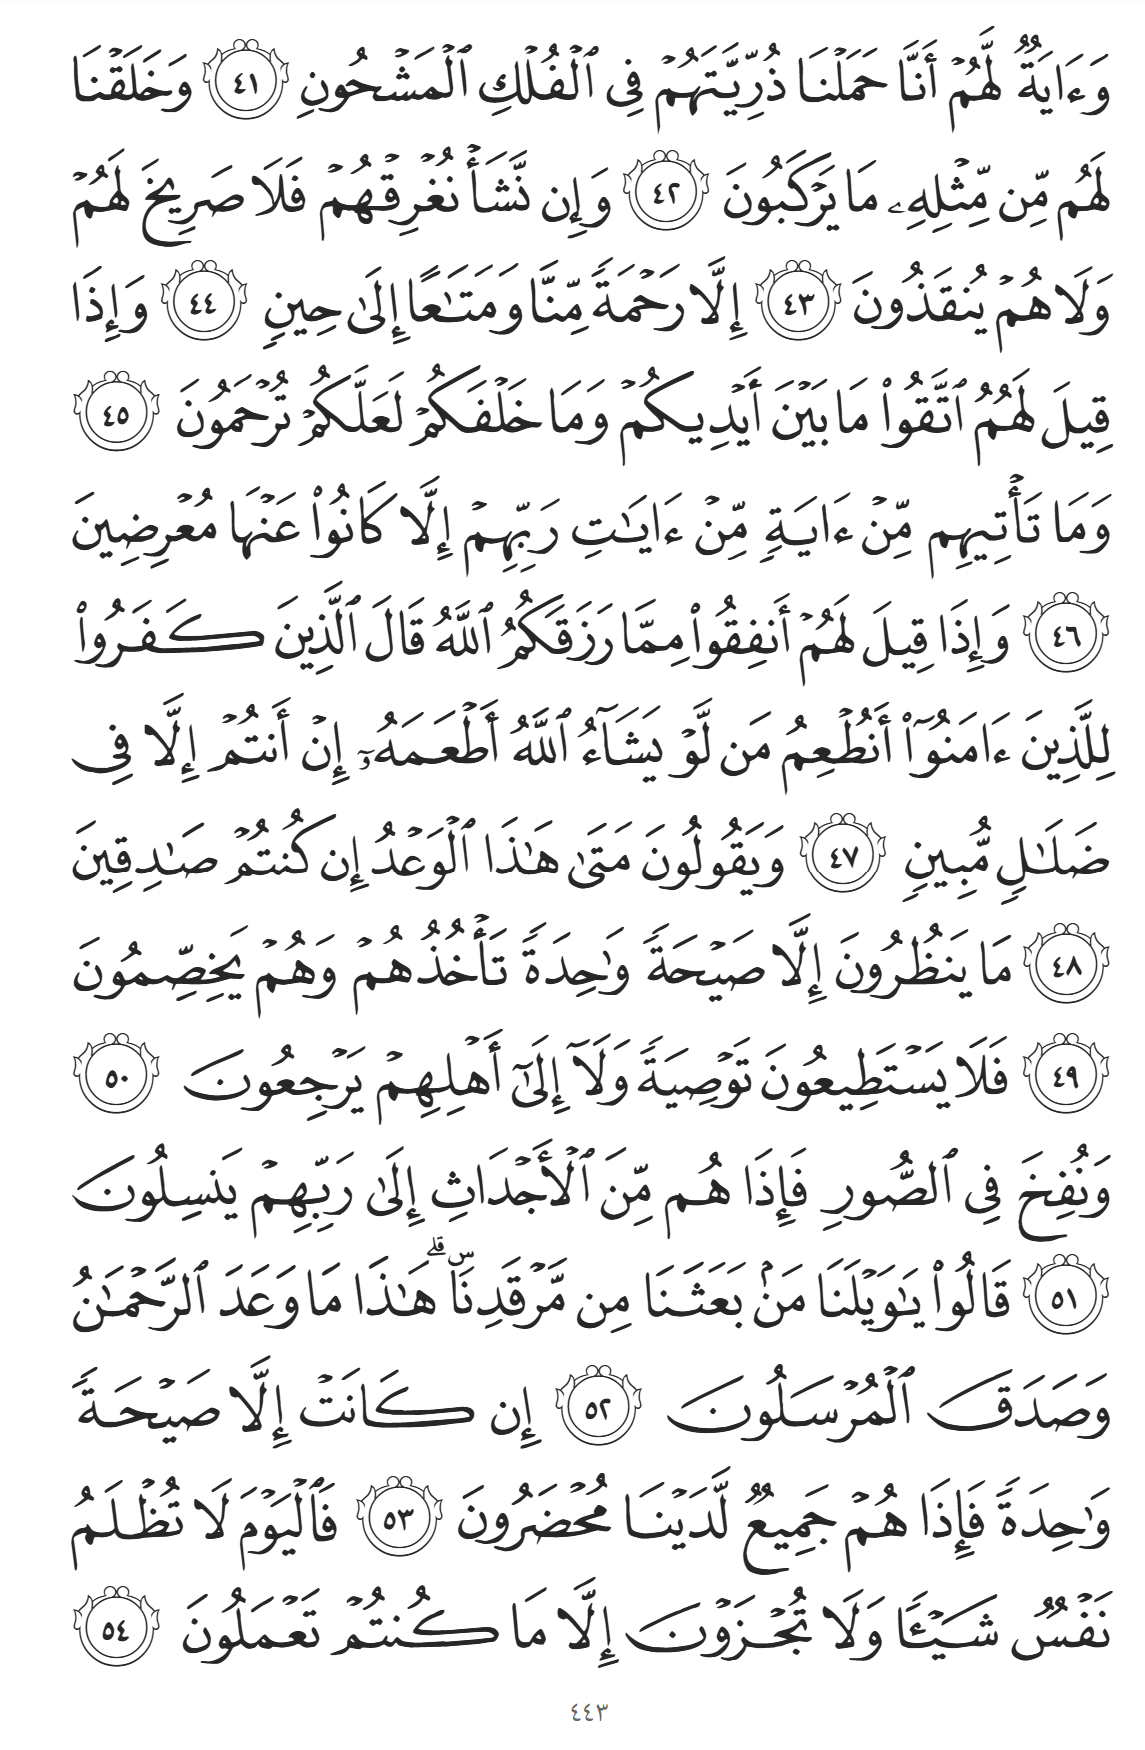 وَءَايَةٌ لَّهُمْ أَنَّا حَمَلْنَا ذُرِّيَّتَهُمْ فِى ٱلْفُلْكِ ٱلْمَشْحُونِ ٤١ وَخَلَقْنَا
لَهُم مِّن مِّثْلِهِۦ مَا يَرْكَبُونَ ٤٢ وَإِن نَّشَأْ نُغْرِقْهُمْ فَلَا صَرِيخَ لَهُمْ
وَلَا هُمْ يُنقَذُونَ ٤٣ إِلَّا رَحْمَةً مِّنَّا وَمَتَـٰعًا إِلَىٰ حِينٍ ٤٤ وَإِذَا
قِيلَ لَهُمُ ٱتَّقُوا۟ مَا بَيْنَ أَيْدِيكُمْ وَمَا خَلْفَكُمْ لَعَلَّكُمْ تُرْحَمُونَ ٤٥
وَمَا تَأْتِيهِم مِّنْ ءَايَةٍ مِّنْ ءَايَـٰتِ رَبِّهِمْ إِلَّا كَانُوا۟ عَنْهَا مُعْرِضِينَ
٤٦ وَإِذَا قِيلَ لَهُمْ أَنفِقُوا۟ مِمَّا رَزَقَكُمُ ٱللَّهُ قَالَ ٱلَّذِينَ كَفَرُوا۟
لِلَّذِينَ ءَامَنُوٓا۟ أَنُطْعِمُ مَن لَّوْ يَشَآءُ ٱللَّهُ أَطْعَمَهُۥٓ إِنْ أَنتُمْ إِلَّا فِى
ضَلَـٰلٍ مُّبِينٍ ٤٧ وَيَقُولُونَ مَتَىٰ هَـٰذَا ٱلْوَعْدُ إِن كُنتُمْ صَـٰدِقِينَ
٤٨ مَا يَنظُرُونَ إِلَّا صَيْحَةً وَٰحِدَةً تَأْخُذُهُمْ وَهُمْ يَخِصِّمُونَ
٤٩ فَلَا يَسْتَطِيعُونَ تَوْصِيَةً وَلَآ إِلَىٰٓ أَهْلِهِمْ يَرْجِعُونَ ٥٠
وَنُفِخَ فِى ٱلصُّورِ فَإِذَا هُم مِّنَ ٱلْأَجْدَاثِ إِلَىٰ رَبِّهِمْ يَنسِلُونَ
٥١ قَالُوا۟ يَـٰوَيْلَنَا مَنۢ بَعَثَنَا مِن مَّرْقَدِنَا ۜ ۗ هَـٰذَا مَا وَعَدَ ٱلرَّحْمَـٰنُ
وَصَدَقَ ٱلْمُرْسَلُونَ ٥٢ إِن كَانَتْ إِلَّا صَيْحَةً
وَٰحِدَةً فَإِذَا هُمْ جَمِيعٌ لَّدَيْنَا مُحْضَرُونَ ٥٣ فَٱلْيَوْمَ لَا تُظْلَمُ
نَفْسٌ شَيْـًٔا وَلَا تُجْزَوْنَ إِلَّا مَا كُنتُمْ تَعْمَلُونَ ٥٤
٤٤٣